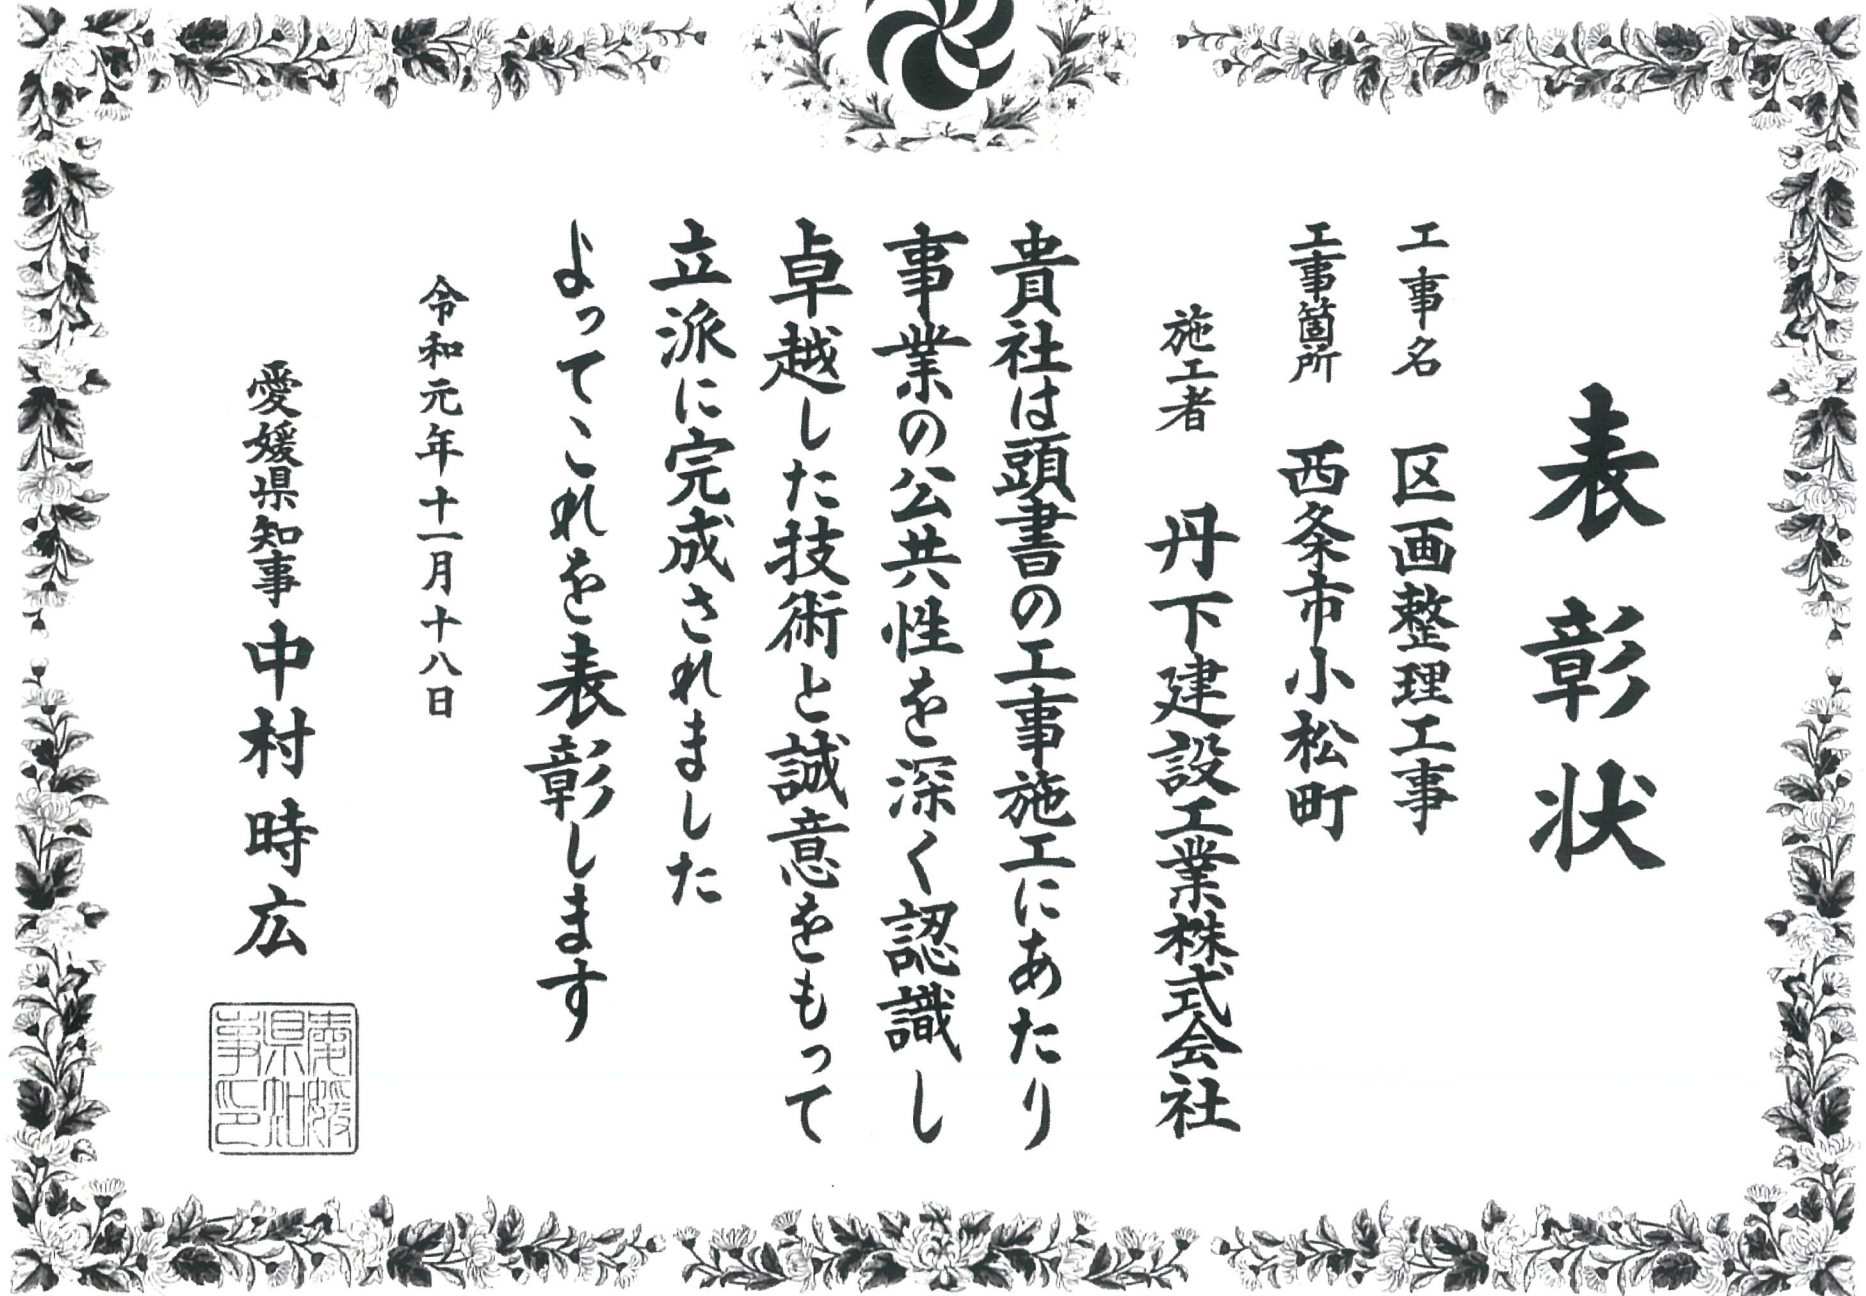 表彰状
工事名 区画整理工事
工事箇所 西条市小松町
施工者 丹下建設工業株式会社
貴社は頭書の工事施工にあたり
事業の公共性を深く認識し
卓越した技術と誠意をもって
立派に完成されました
よってこれを表彰します
令和元年十一月十八日
愛媛県知事 中村時広
愛媛
県知
事印